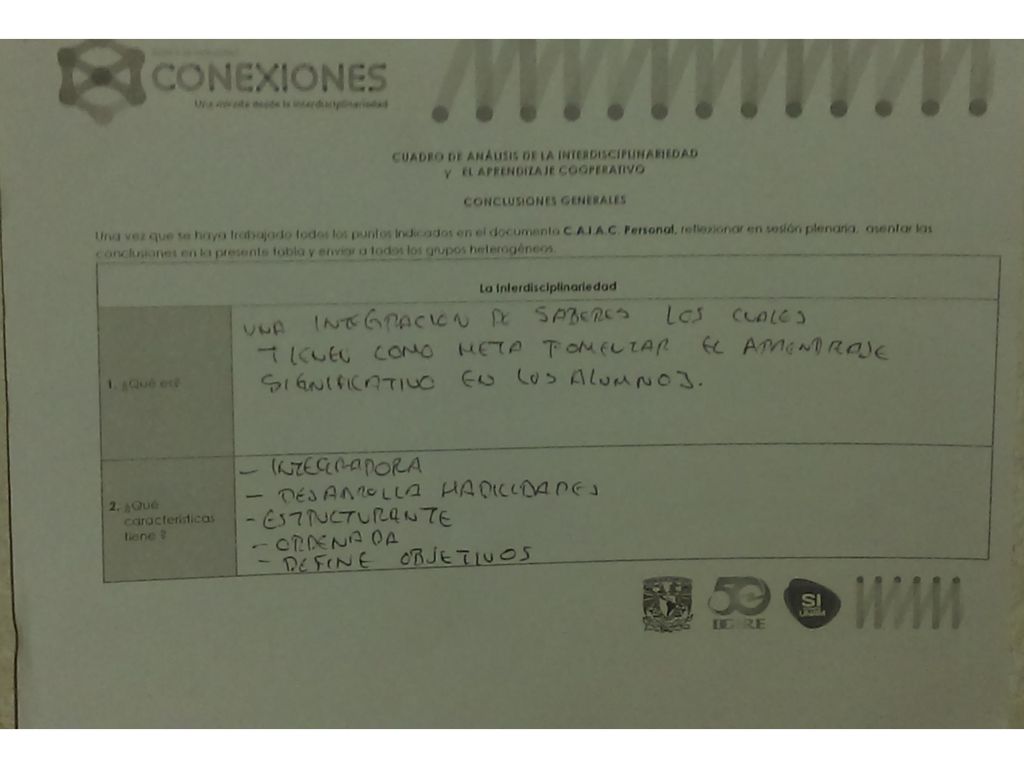 CONEXIONES
Una mirada desde la interdisciplinariedad
CUADRO DE ANÁLISIS DE LA INTERDISCIPLINARIEDAD
y EL APRENDIZAJE COOPERATIVO
CONCLUSIONES GENERALES
Una vez que se haya trabajado todos los puntos indicados en el documento C.A.I.A.C. Personal, reflexionar en sesión plenaria, asentar las
conclusiones en la presente tabla y enviar a todos los grupos heterogéneos.
La Interdisciplinariedad
1. ¿Qué es?
UNA INTEGRACION DE SABERES LOS CUALES
TIENEN COMO META FOMENTAR EL APRENDIZAJE
SIGNIFICATIVO EN LOS ALUMNOS.
2. ¿Qué
características
tiene ?
- INTEGRADORA
- DESARROLLA HABILIDADES
- ESTRUCTURANTE
- ORDENADA
- DEFINE OBJETIVOS
50
DGIRE
SI
UNAM